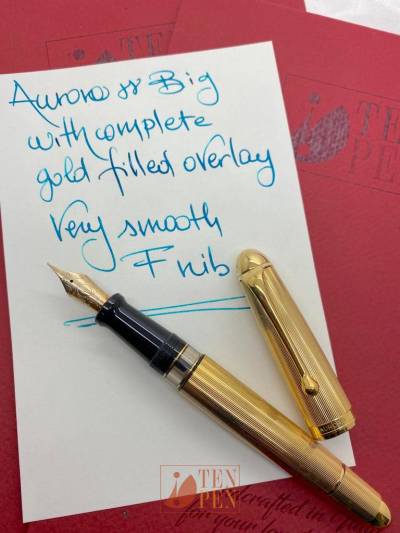 Aurora 88 Big
with complete
gold filled overlay
Very smooth
F nib
TEN
PEN
TEN
PEN